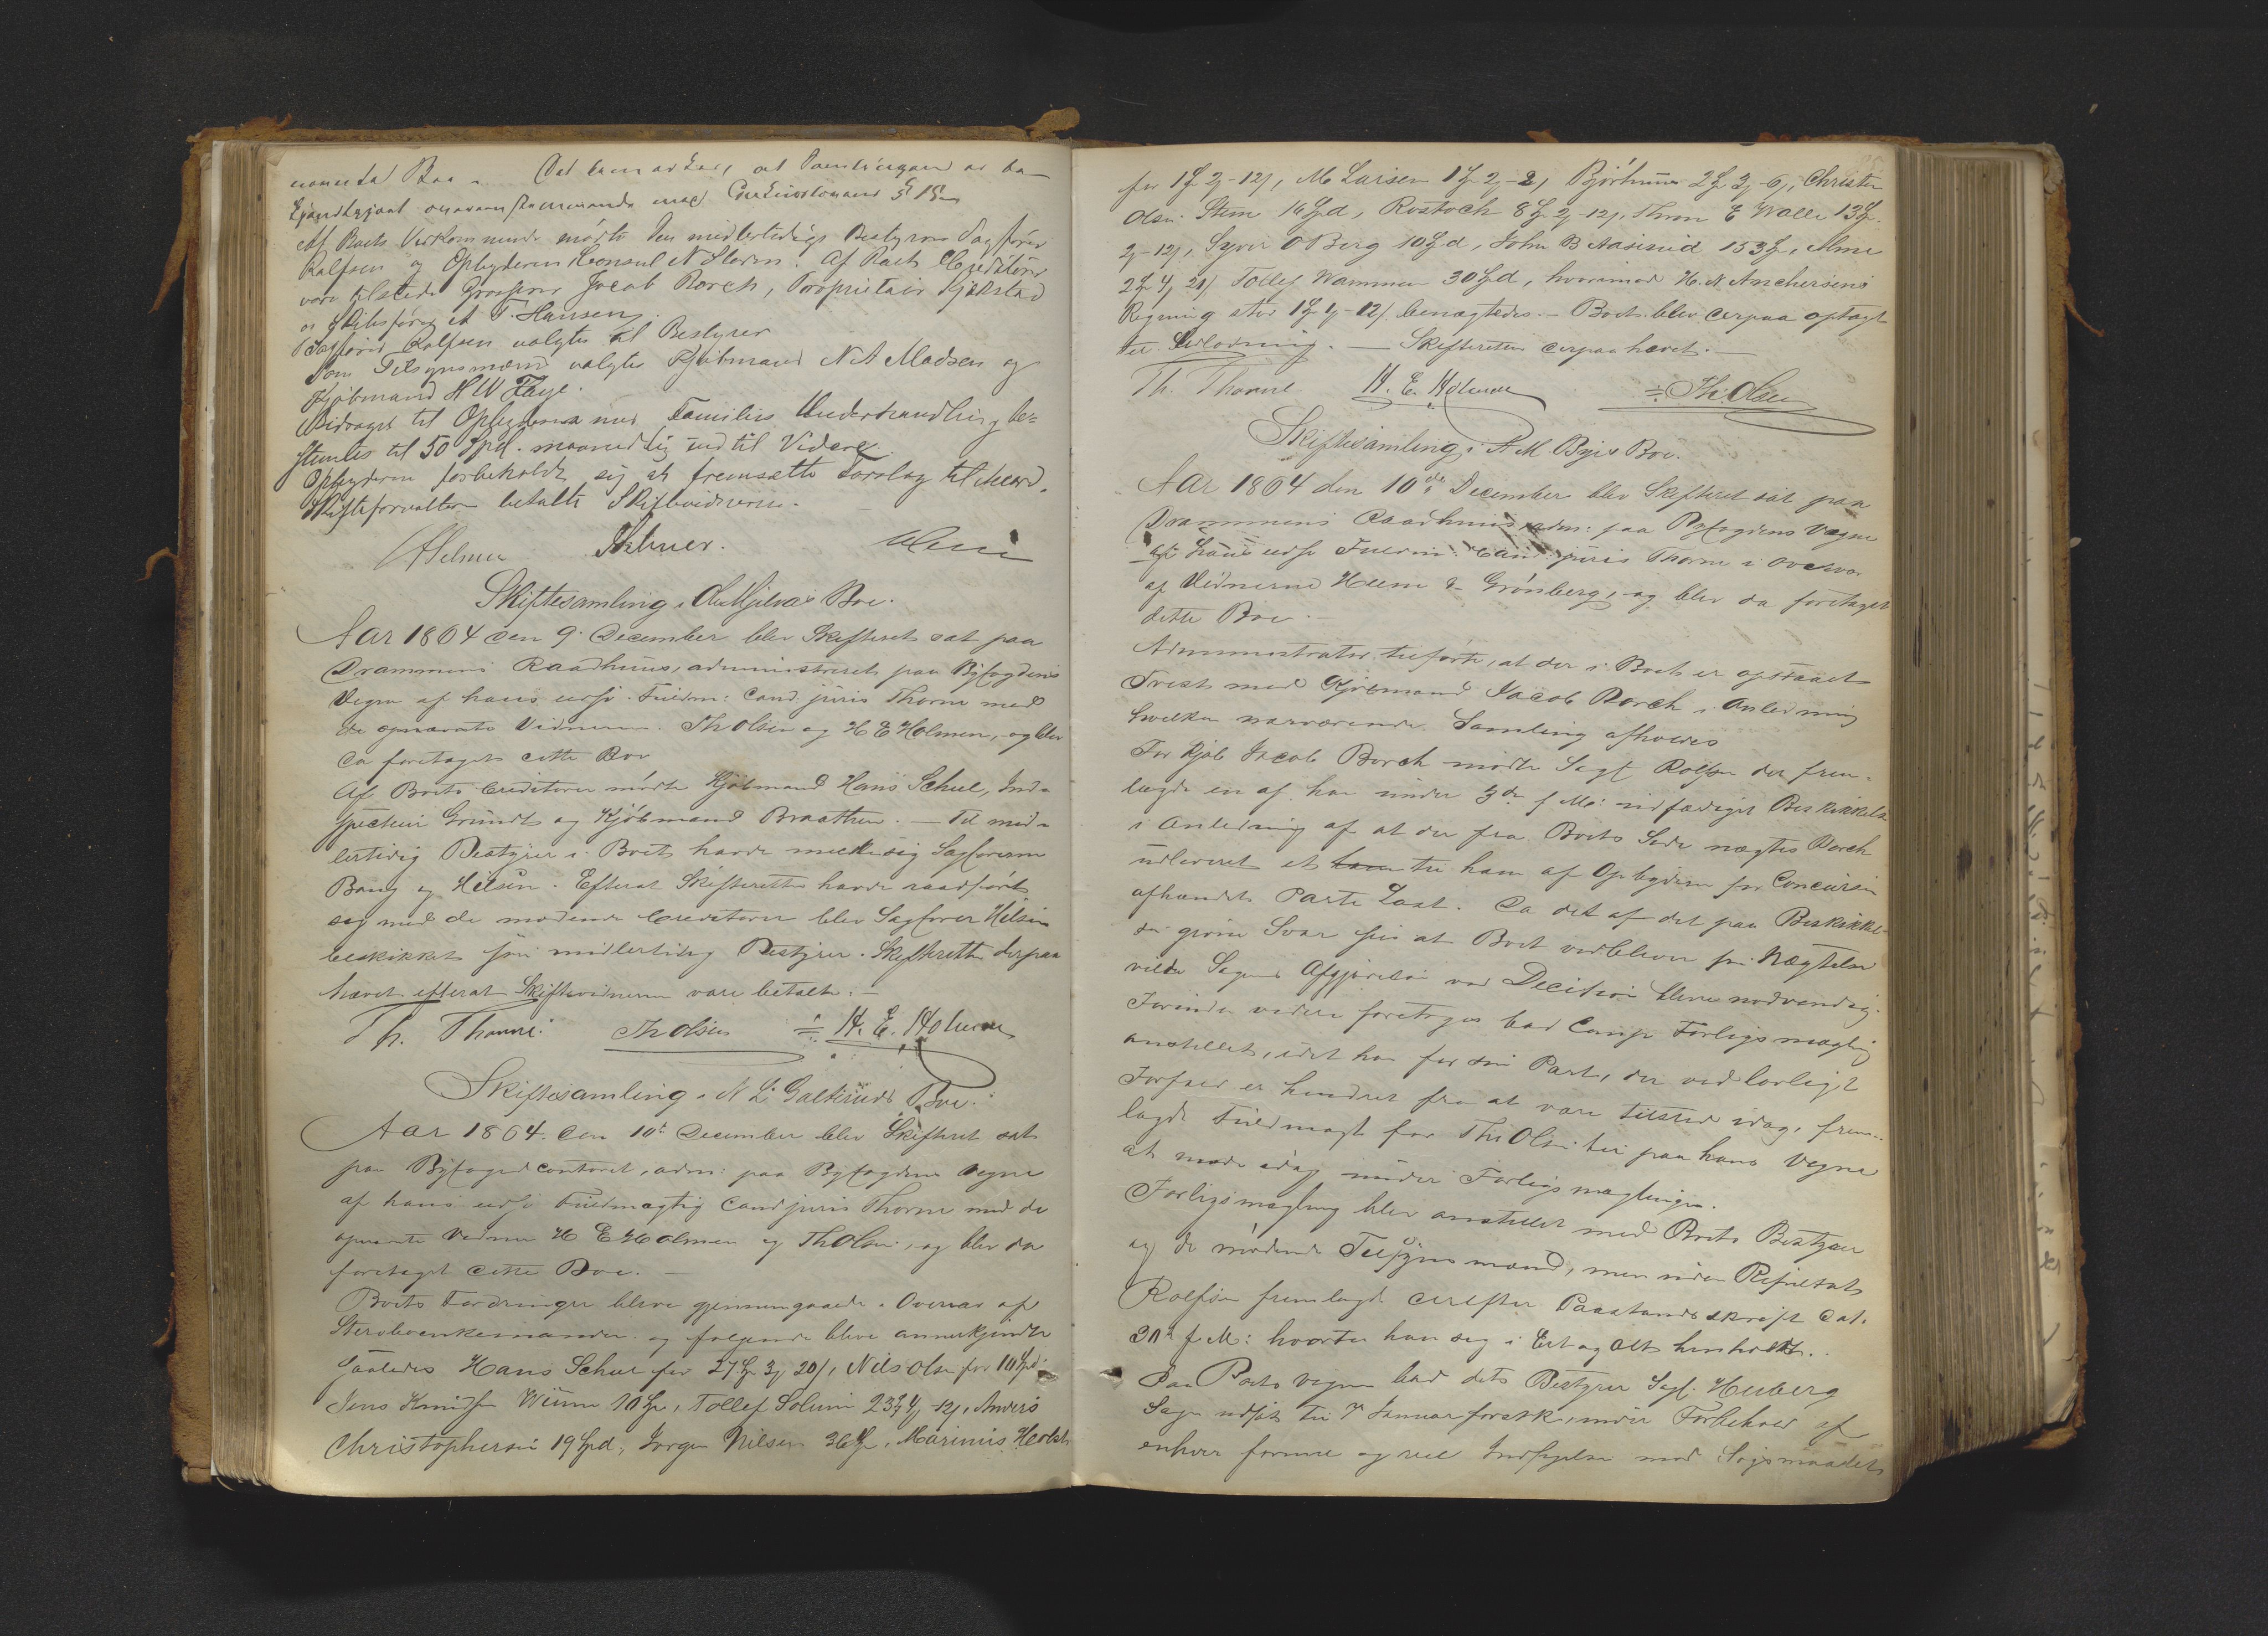 nævnte Boe. Det bemærkes, at Samlingen er be-
kjendtgjort overensstemmende med Concursloven § 15
Af Boets Vedkommende mødte den midlertidige Bestyrer Sagfører
Rolfsen og Opbyderen Consul N Storm. Af Boets Creditorer
vare tilstede Grosserer Jacob Borch, Proprietair Kjekstad
og Skibsfører A T. Hansen
Sagfører Rolfsen valgtes til Bestyrer
Som Tilsynsmænd valgtes Kjøbmand N A Madsen og
Kjøbmand H W Faye.
Bidraget til Opbyderen med Families Underholdning be-
stemtes til 50 Spd. maanedlig indtil Videre
Opbyderen forbeholdt sig at fremsætte Forslag til Accord.
Skifteforvalteren betalte Skiftevidnerne.
Skiftesamling i Boe.
Aar 1864 den 9. December blev Skifteret sat paa
Drammens Raadhuus, administreret paa Byfogdens
Vegne af hans edsv. Fuldm: Cand juris Thorne med
de opnævnte Vidner Th Olsen og H E Holmen, og blev
da foretaget dette Boe
Af Boets Creditorer mødte Kjøbmand Hans Schue, Ind-
specteur Grundt og Kjøbmand Braathen. — Til mid-
lertidig Bestyrer i Boet havde meldt sig Sagførerne
Bang og Hilsen. Efterat Skifteretten havde raadført
sig med de mødende Creditorer blev Sagfører Hilsen
beskikket som midlertidig Bestyrer. Skifteretten derpaa
hævet efterat Skiftevidnerne vare betalte. —
Th. Thorne. Th Olsen H. E. Holmen
Skiftesamling i N L Galteruds Boe.
Aar 1864. den 10de December blev Skifteret sat
paa Byfogedcontoret, adm: paa Byfogdens Vegne
af hans edsv Fuldmægtig Cand juris Thorne med de
opnævnte Vidner H E Holmen og Th Olsen, og blev da
foretaget dette Boe. —
Boets Fordringer bleve gjennemgaaede i Overvær af
og følgende bleve annerkjendte
saaledes Hans Schue for 27 3 20, Nils Olsen for 10 Spd
Jens Knudsen 10, Tollef Solum 23 12, Anders
Christophersen 19 Spd, Jørgen Nilsen 36, Marinus
for 1 2-12, M Larsen 1 2-2, 2 3-6, Christen
Olsen Stem 16 Spd, Rostoch 8 2-12, Thron E Walle 13
2-12, Syver O Berg 10 Spd, John B 153,
Tollef Wammen 30 Spd, hvorimod H. N. Anchersens
Regning stor 1 1-12 benægtedes. — Boet blev derpaa optaget
til Udlodning. — Skifteretten derpaa hævet. —
Th. Thorne H. E. Holmen Th. Olsen
Skiftesamling i A M Byes Boe.
Aar 1864 den 10de December blev Skifteret sat paa
Drammens Raadhuus, adm: paa Byfogdens Vegne
af hans edsv Fuldm: Cand: juris Thorne i Overvær
af Vidnerne Heem & Grønberg, og blev da foretaget
dette Boe. —
Administrator tilførte, at der i Boet er opstaaet
Tvist med Kjøbmand Jacob Borch i Anledning
hvilken nærværende Samling afholdes
For Kjøb Jacob Borch mødte Sagf Rolfsen der frem-
lagde en af ham under 3de f. M: udfærdiget Beskikkelse
i Anledning af at der fra Boets Side nægtes Borch
udleveret et til ham af Opbyderen før Concursen
afhændet Parti Last. Da det af det paa Beskikkel-
sen givne Svar sees at Boet vedbliver sin Nægtelse
vilde Sagens Afgjørelse ved Decision blive nødvendig.
Forinden videre foretoges bad Comp Forligsmægling
anstillet, idet han for sin Part, der ved lovligt
Forfald er hindret fra at være tilstede idag, frem-
lagde Fuldmagt for Th Olsen til paa hans Vegne
at møde idag under Forligsmæglingen.
Forligsmægling blev anstillet med Boets Bestyrer
og de mødende Tilsynsmænd, men uden Resultat
Rolfsen fremlagde derefter Paastandsskrift dat.
30te f. M: hvortil han sig i Et og Alt henholdt.
Paa Boets Vegne bad dets Bestyrer Sagf. Heuberg
Sagen udsat til 7 Januar førstk. under Forbehold af
enhver formel og reel Indsigelse mod Søgsmaalet